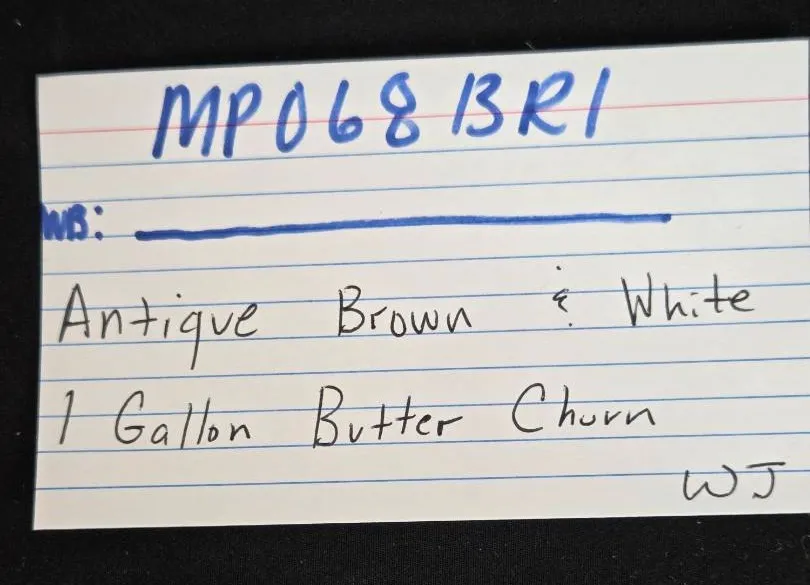 MP068BR1
WB:
Antique Brown & White
1 Gallon Butter Churn
WJ